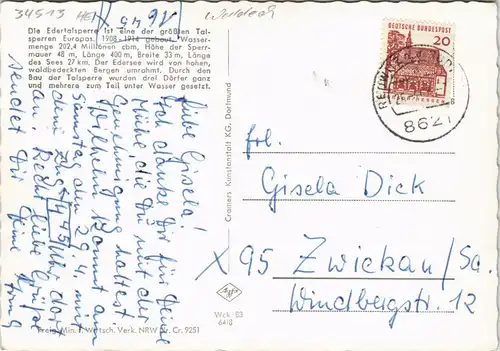 34513 HE
1645
Waldeck
Die Edertalsperre ist eine der größten Tal-
sperren Europas. 1908-1914 gebaut. Wasser-
menge 202,4 Millionen cbm, Höhe der Sperr-
mauer 48 m, Länge 400 m, Breite 33 m, Länge
des Sees 27 km. Der Edersee wird von hohen,
waldbedeckten Bergen umrahmt. Durch den
Bau der Talsperre wurden drei Dörfer ganz
und mehrere zum Teil unter Wasser gesetzt.
Liebe Gisela!
Ich danke Dir für Deine
Mühe, die Du mit der
Genehmigung hattest.
Wilhelm kommt am
Samstag dem 29.4. mit
dem Zug 14.45 Uhr dort
an. Recht liebe Grüße
sendet Dir Deine
Cramers Kunstanstalt KG, Dortmund
DEUTSCHE BUNDESPOST
20
8621
Frl.
Gisela Dick
X 95 Zwickau/Sa.
Windbergstr. 12
Wek 83
6410
Freig. Min. f. Wirtsch. Verk. NRW Nr. Cr. 9251